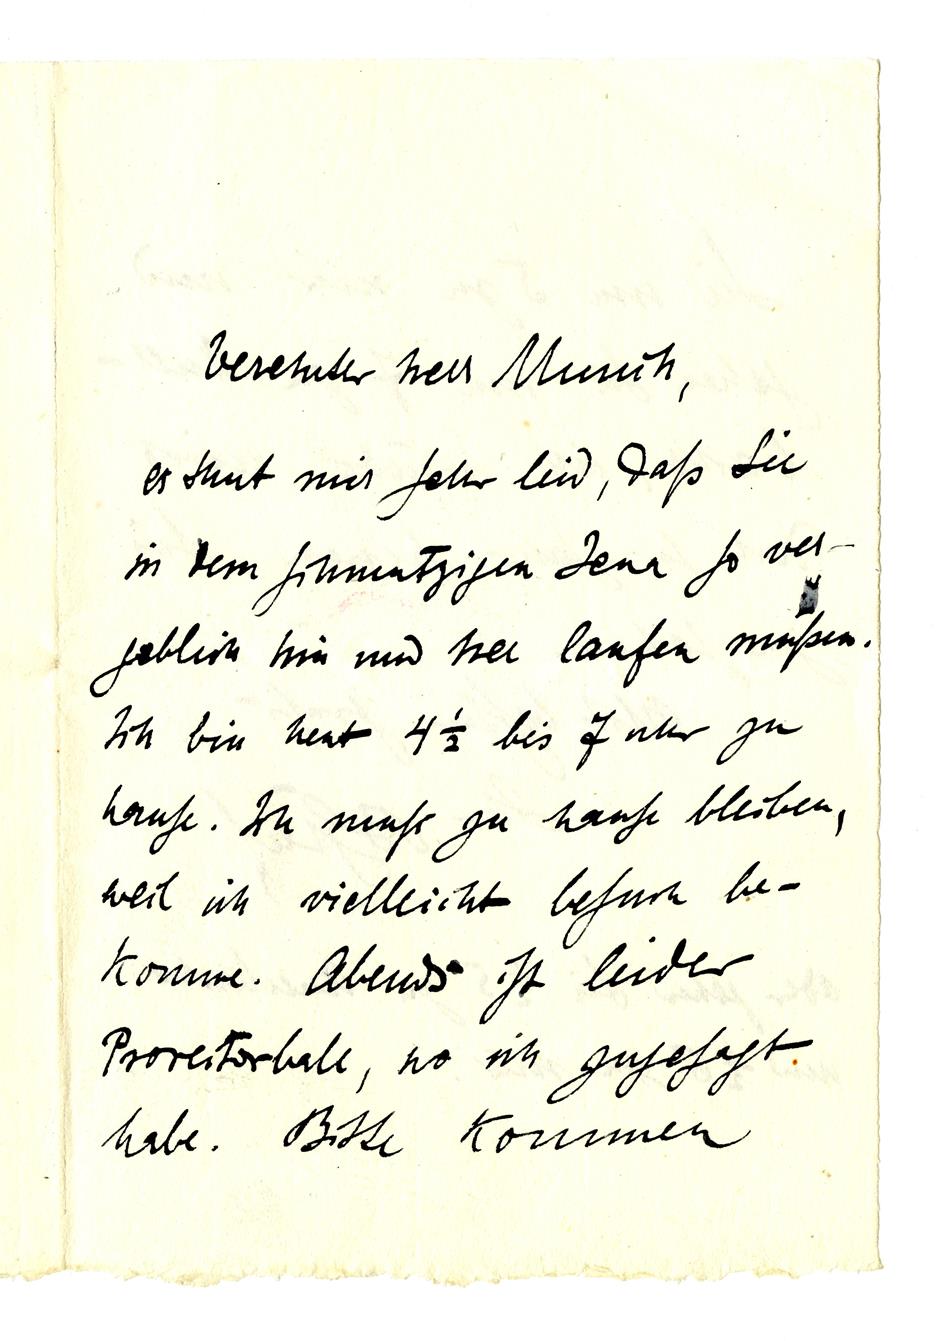 Verehrter Herr Munch,
es thut mir sehr leid, daß Sie
in dem schmutzigen Jena so ver-
geblich hin und her laufen mußten.
Ich bin heut 4½ bis 7 uhr zu
hause. Ich muß zu hause bleiben,
weil ich vielleicht besuch be-
komme. Abends ist leider
Prorectorball, wo ich zugesagt
habe. Bitte kommen